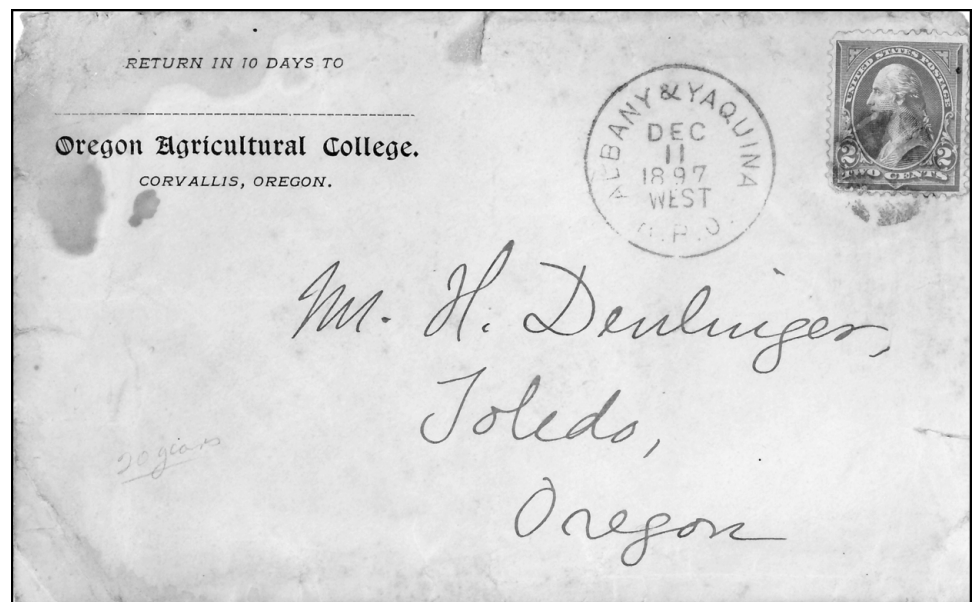 RETURN IN 10 DAYS TO
Oregon Agricultural College.
CORVALLIS, OREGON.
ALBANY & YAQUINA
DEC
11
1897
WEST
R.P.O.
UNITED STATES POSTAGE
2 2
TWO CENTS
M. H. Denlinger,
Toledo,
Oregon